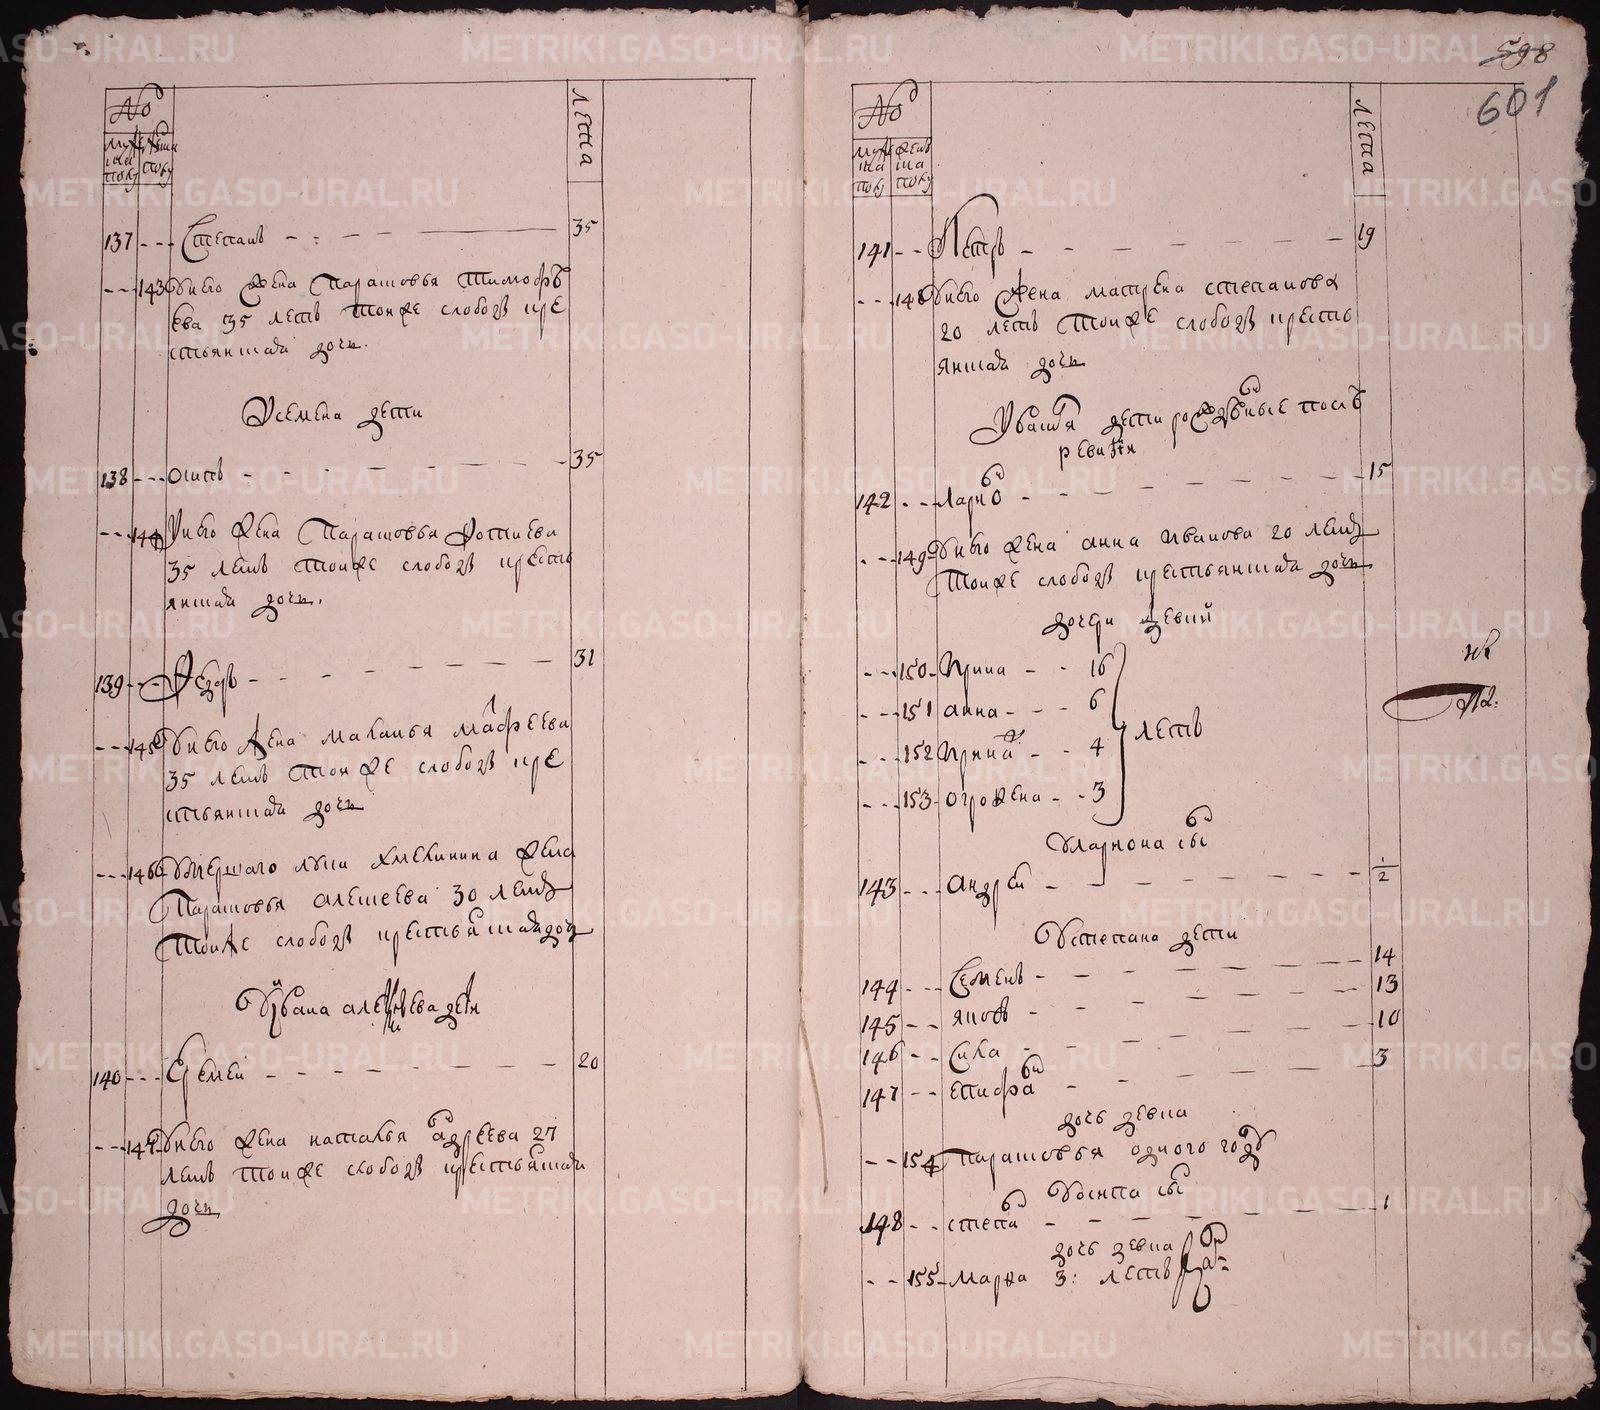 №
мужеска полу
женска полу
лета
137 Степанъ 35
143 У него жена Парасковья Тимофѣ
ева 35 летъ тоиже слободы кре
стьянская дочь.
У Семена дети
138 Осипъ 35
144 У него жена Парасковья
35 летъ тоиже слободы кресть
янская дочь.
139 Федоръ 31
145 У него жена Маланья Матфеева
35 летъ тоиже слободы кре
стьянская дочь
146 Умершаго жена
Парасковья Алексеева 30 летъ
тоиже слободы крестьянская дочь
У Ивана Алексеева дети
140 Еремей 20
147 У него жена Наталья Андреева 27
летъ тоиже слободы крестьянская
дочь
598
601
№
мужеска полу
женска полу
лета
141 Петръ 19
148 У него жена Матрена Степанова
20 летъ тоиже слободы кресть
янская дочь
У Ивана дети рожденные послѣ
ревизии
142 Ларионъ 15
149 У него жена Анна Иванова 20 летъ
тоиже слободы крестьянская дочь
дочери девки
150 Ирина 16
151 Анна 6
152 Ирина 4 летъ
153 Огрофена 3
У Лариона сынъ
143 Андрей 1/2
У Степана дети
144 Семенъ 14
145 Яковъ 13
146 Сила 10
147 Епифанъ 3
дочь девка
154 Парасковья одного году
У Осипа сынъ
148 Степанъ 1
дочь девка
155 Марья 3: летъ
METRIKI.GASO-URAL.RU